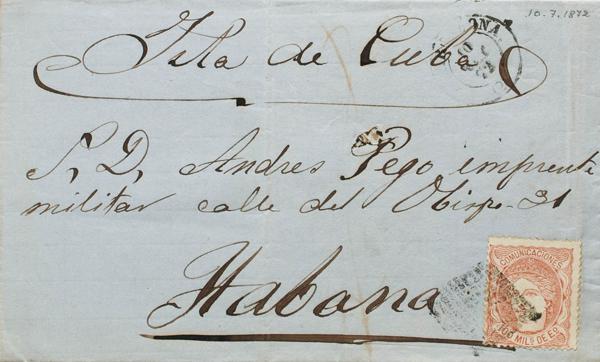 10.7.1872
Isla de Cuba
S, D, Andres Pego imprenta
militar calle del Obispo - 31
Habana
COMUNICACIONES
100 MILS DE EO